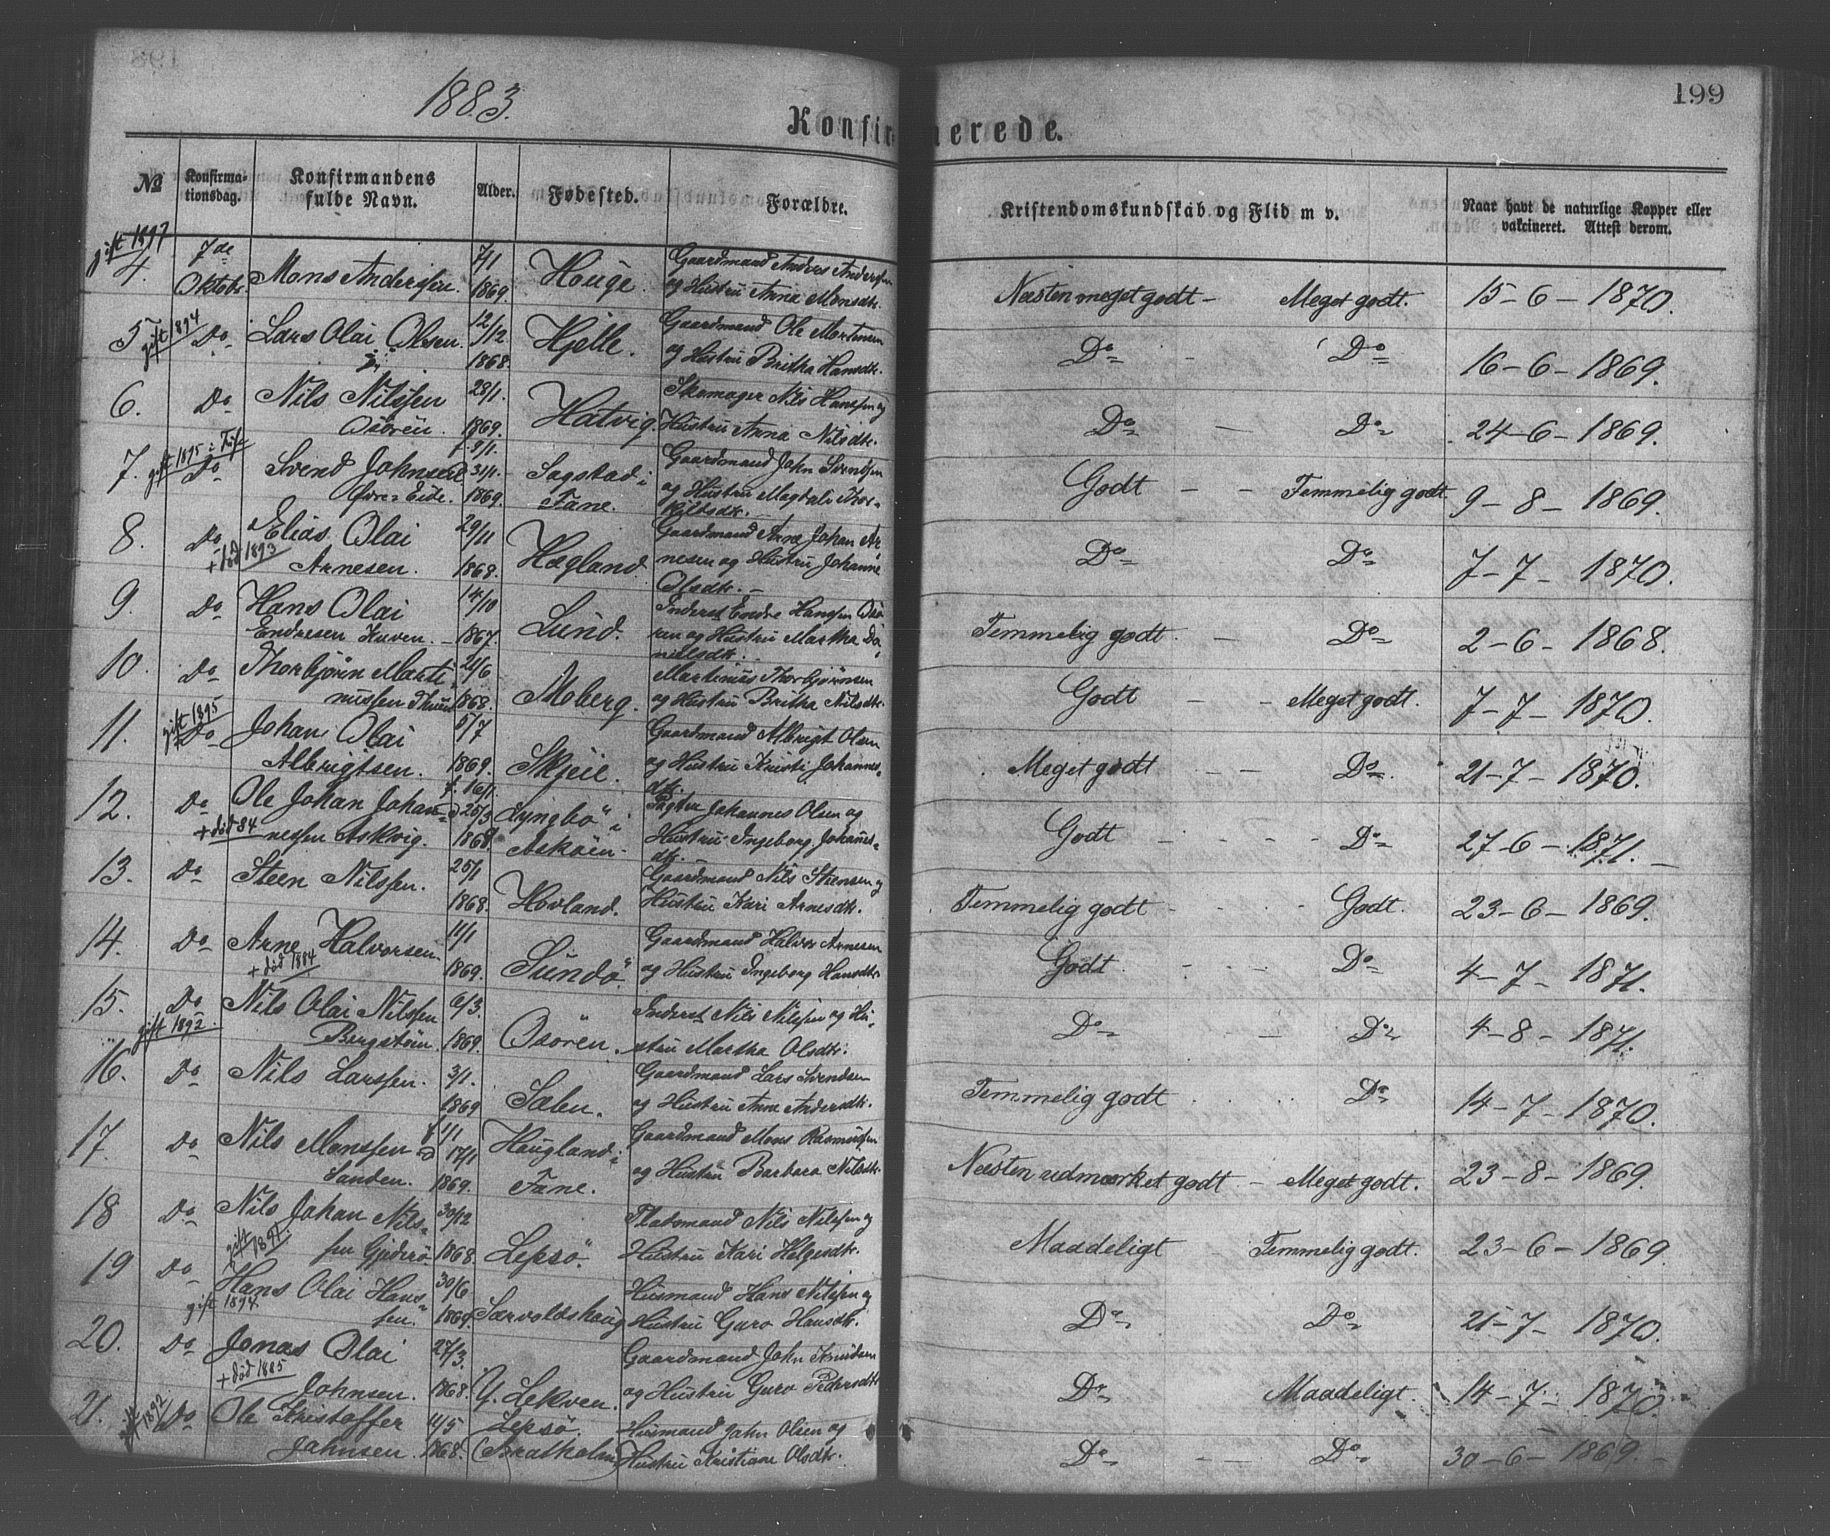 1883.
199
Konfirmerede.
№ Konfirma-tionsdag. Konfirmandens fulde Navn. Alder. Fødested. Forældre. Kristendomskundskab og Flid m v. Naar havt de naturlige Kopper eller vakcineret. Attest derom.
gift 1897
4. 7de Oktobr. Mons Andersen. 7/1 1869. Houge. Gaardmand Anders Andersen og Hustru Anna Monsdtr. Næsten meget godt – Meget godt. 15-6-1870.
5. gift 1894 Do Lars Olai Olsen. 12/12 1868. Hjelle. Gaardmand Ole Mortensen og Hustru Britha Hansdtr. Do - Do 16-6-1869.
6. Do Nils Nilssen Osören. 28/1. 1869. Hatvig. Skomager Nils Hanssen og Hustru Anna Nilsdtr. Do – Do 24-6-1869.
7. gift 1895 i Do Svend Johnsen Øvre-Eide. f. 8/1. d 31/1. 1869. Sagstad i Fane. Gaardmand John Svendsen og Hustru Magdali Thorkildsdtr. Godt – – Temmelig godt 9-8-1869.
8. Do + död 1893 Elias Olai Arnesen. 29/11 1868. Hægland Gaardmand Arne Johan Arnesen og Hustru Johanne Olsdtr. Do Do 7-7-1870.
9. Do Hans Olai Endresen Kuven. 14/10 1867. Lund. Inderst Endre Hanssen Osören og Hustru Martha Danielsdtr. Temmelig godt – Do 2-6-1868.
10. Do Thorbjörn Martinussen Thuen 20/6 1868. Moberg. Martinus Thorbjörnsen og Hustru Britha Nilsdtr. Godt – – Meget godt. 7-7-1870.
11. gift 1895 Do Johan Olai Albrigtsen. 6/7 1869. Skjeie. Gaardmand Albrigt Olsen og Hustru Kristi Johannesdtr. Meget godt – – Do 21-7-1870.
12. Do + död 84 Ole Johan Johannessen Askvig. f. 16/1. d 25/3 1868 Lyngbö i Asköen. Johannes Olsen og Hustru Ingeborg Johannesdtr. Godt - - - - Do 27-6-1871.
13. Do Steen Nilssen. 25/1 1868. Hovland. Gaardmand Nils Stensen og Hustru Kari Arnesdtr. Temmelig godt - - - Godt. 23-6-1869.
14. Do Arne Halvorsen. + död 1884 11/1 1869. Sundö. Gaardmand Halvor Arnesen og Hustru Ingeborg Hansdtr. Godt. - - - Do 4-7-1871.
15. Do gift 1892. Nils Olai Nilssen Bergstöm. 6/3. 1869. Osören. Inderst Nils Nilssen og Hustru Martha Olsdtr. Do – Do 4-8-1871.
16. Do Nils Larssen. 3/1. 1869 Salen. Gaardmand Lars Svendsen og Hustru Anne Andersdtr. Temmelig godt . . . . Do 14-7-1870.
17. Do Nils Monssen Sanden. f 1/1 d 17/1 1869. Haugland i Fane. Gaardmand Mons Rasmussen og Hustru Barbara Nilsdtr. Næsten udmærket godt – Meget godt. 23-8-1869.
18 Do Nils Johan Nilssen Gjöderö gift 1891. 30/12 1868. Lepsö. Pladsmand Nils Nilssen og Hustru Kari Helgesdtr. Maadeligt Temmelig godt. 23-6-1869.
19 Do gift 1894 Hans Olai Hanssen. 30/6 1869 Særvoldshaug Husmand Hans Nilssen og Hustru Guro Hansdtr. Do Do 21-7-1870.
20. Do Jonas Olai Johnsen. + död 1885 27/3. 1868. Y. Lekven. Gaardmand John Knudsen og Hustru Guro Pedersdtr. Do Maadeligt. 14-7-1870.
21. gift 1892 Do Ole Kristoffer Johnsen. 11/5 1868. Lepsö. (Bratholm) Husmand John Olsen og Hustru Kristiane Olsdtr. Do - - - Do 30-6-1869.